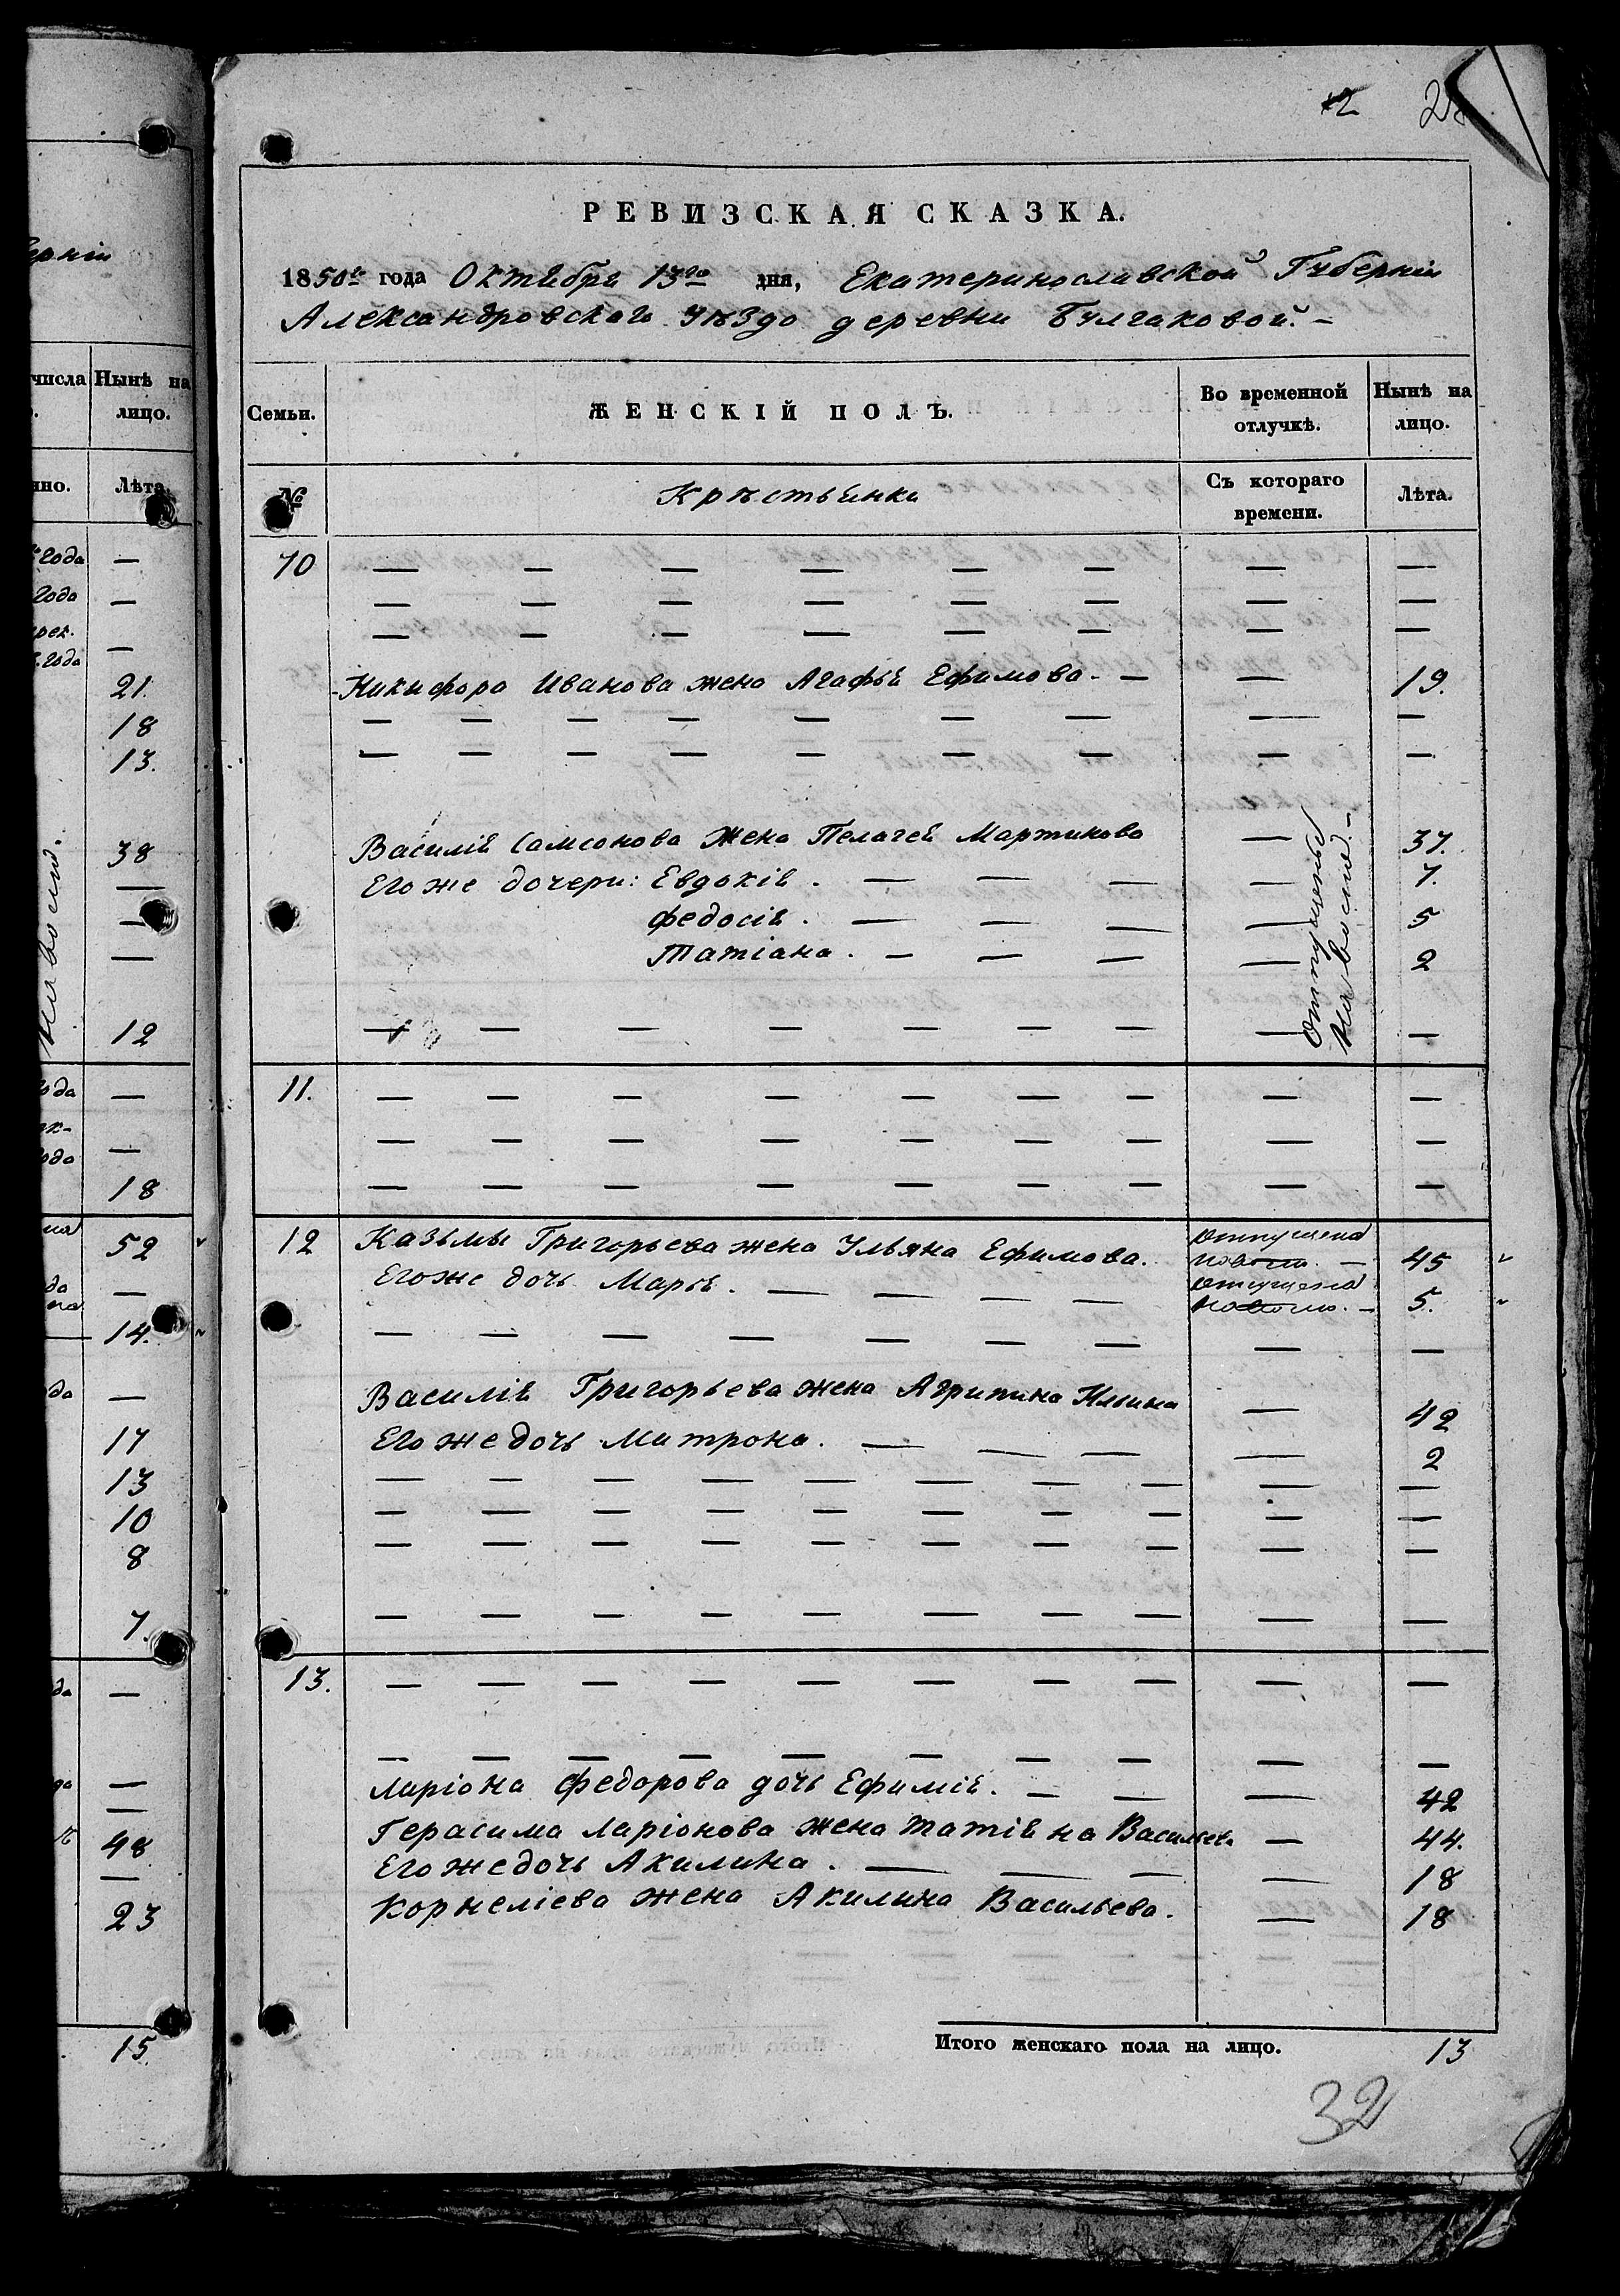 12 2
РЕВИЗСКАЯ СКАЗКА.
1850го года Октября 13го дня, Екатеринославской Губерніи
Александровскаго Уѣзда деревни Булгаковой. –
ерніи
числа Нынѣ на лицо.
Семьи. ЖЕНСКІЙ ПОЛЪ. Во временной отлучкѣ. Нынѣ на лицо.
нно. Лѣта.
№ Крѣстьянки Съ котораго времени. Лѣта.
года —
10 — — — — — — — —
года —
— — — — — — — —
—
— — — — — — — —
года
21. Никифора Иванова жена Агафья Ефимова. — — 19.
18 — — — — — — — — —
13. — — — — — — — — —
38 Василія Самсонова жена Пелагея Мартинова — 37.
— Его же дочери: Евдокія. — — — — 7.
— Федосія. — — — — 5
— Татіана. — — — — 2
Отпущены
на волю. –
на волю.
12 — — — — — — — — —
ода — 11. — — — — — — — — —
— — — — — — — — —
ода —
18 — — — — — — — — —
52 12 Казьмы Григорьева жена Ульяна Ефимова. отпущена на волю. — 45
Его же дочь Марья. — — — — отпущена на волю. — 5.
14. — — — — — — — —
да — Василія Григорьева жена Агрипина Ильина — 42
17 Его же дочь Матрона. — — — — 2
13 — — — — — — — — — —
10 — — — — — — — — — —
8 — — — — — — — — — —
7. — — — — — — — — —
да — 13. — — — — — — — — — —
— — — — — — — — — —
да — Ларіона Федорова дочь Ефимія. — — — 42
48 Герасима Ларіонова жена Татіяна Васильева — 44.
— Его же дочь Акилина. — — — — 18
23 Корнеліева жена Акилина Васильева. — 18
15. Итого женскаго пола на лицо. 13
32